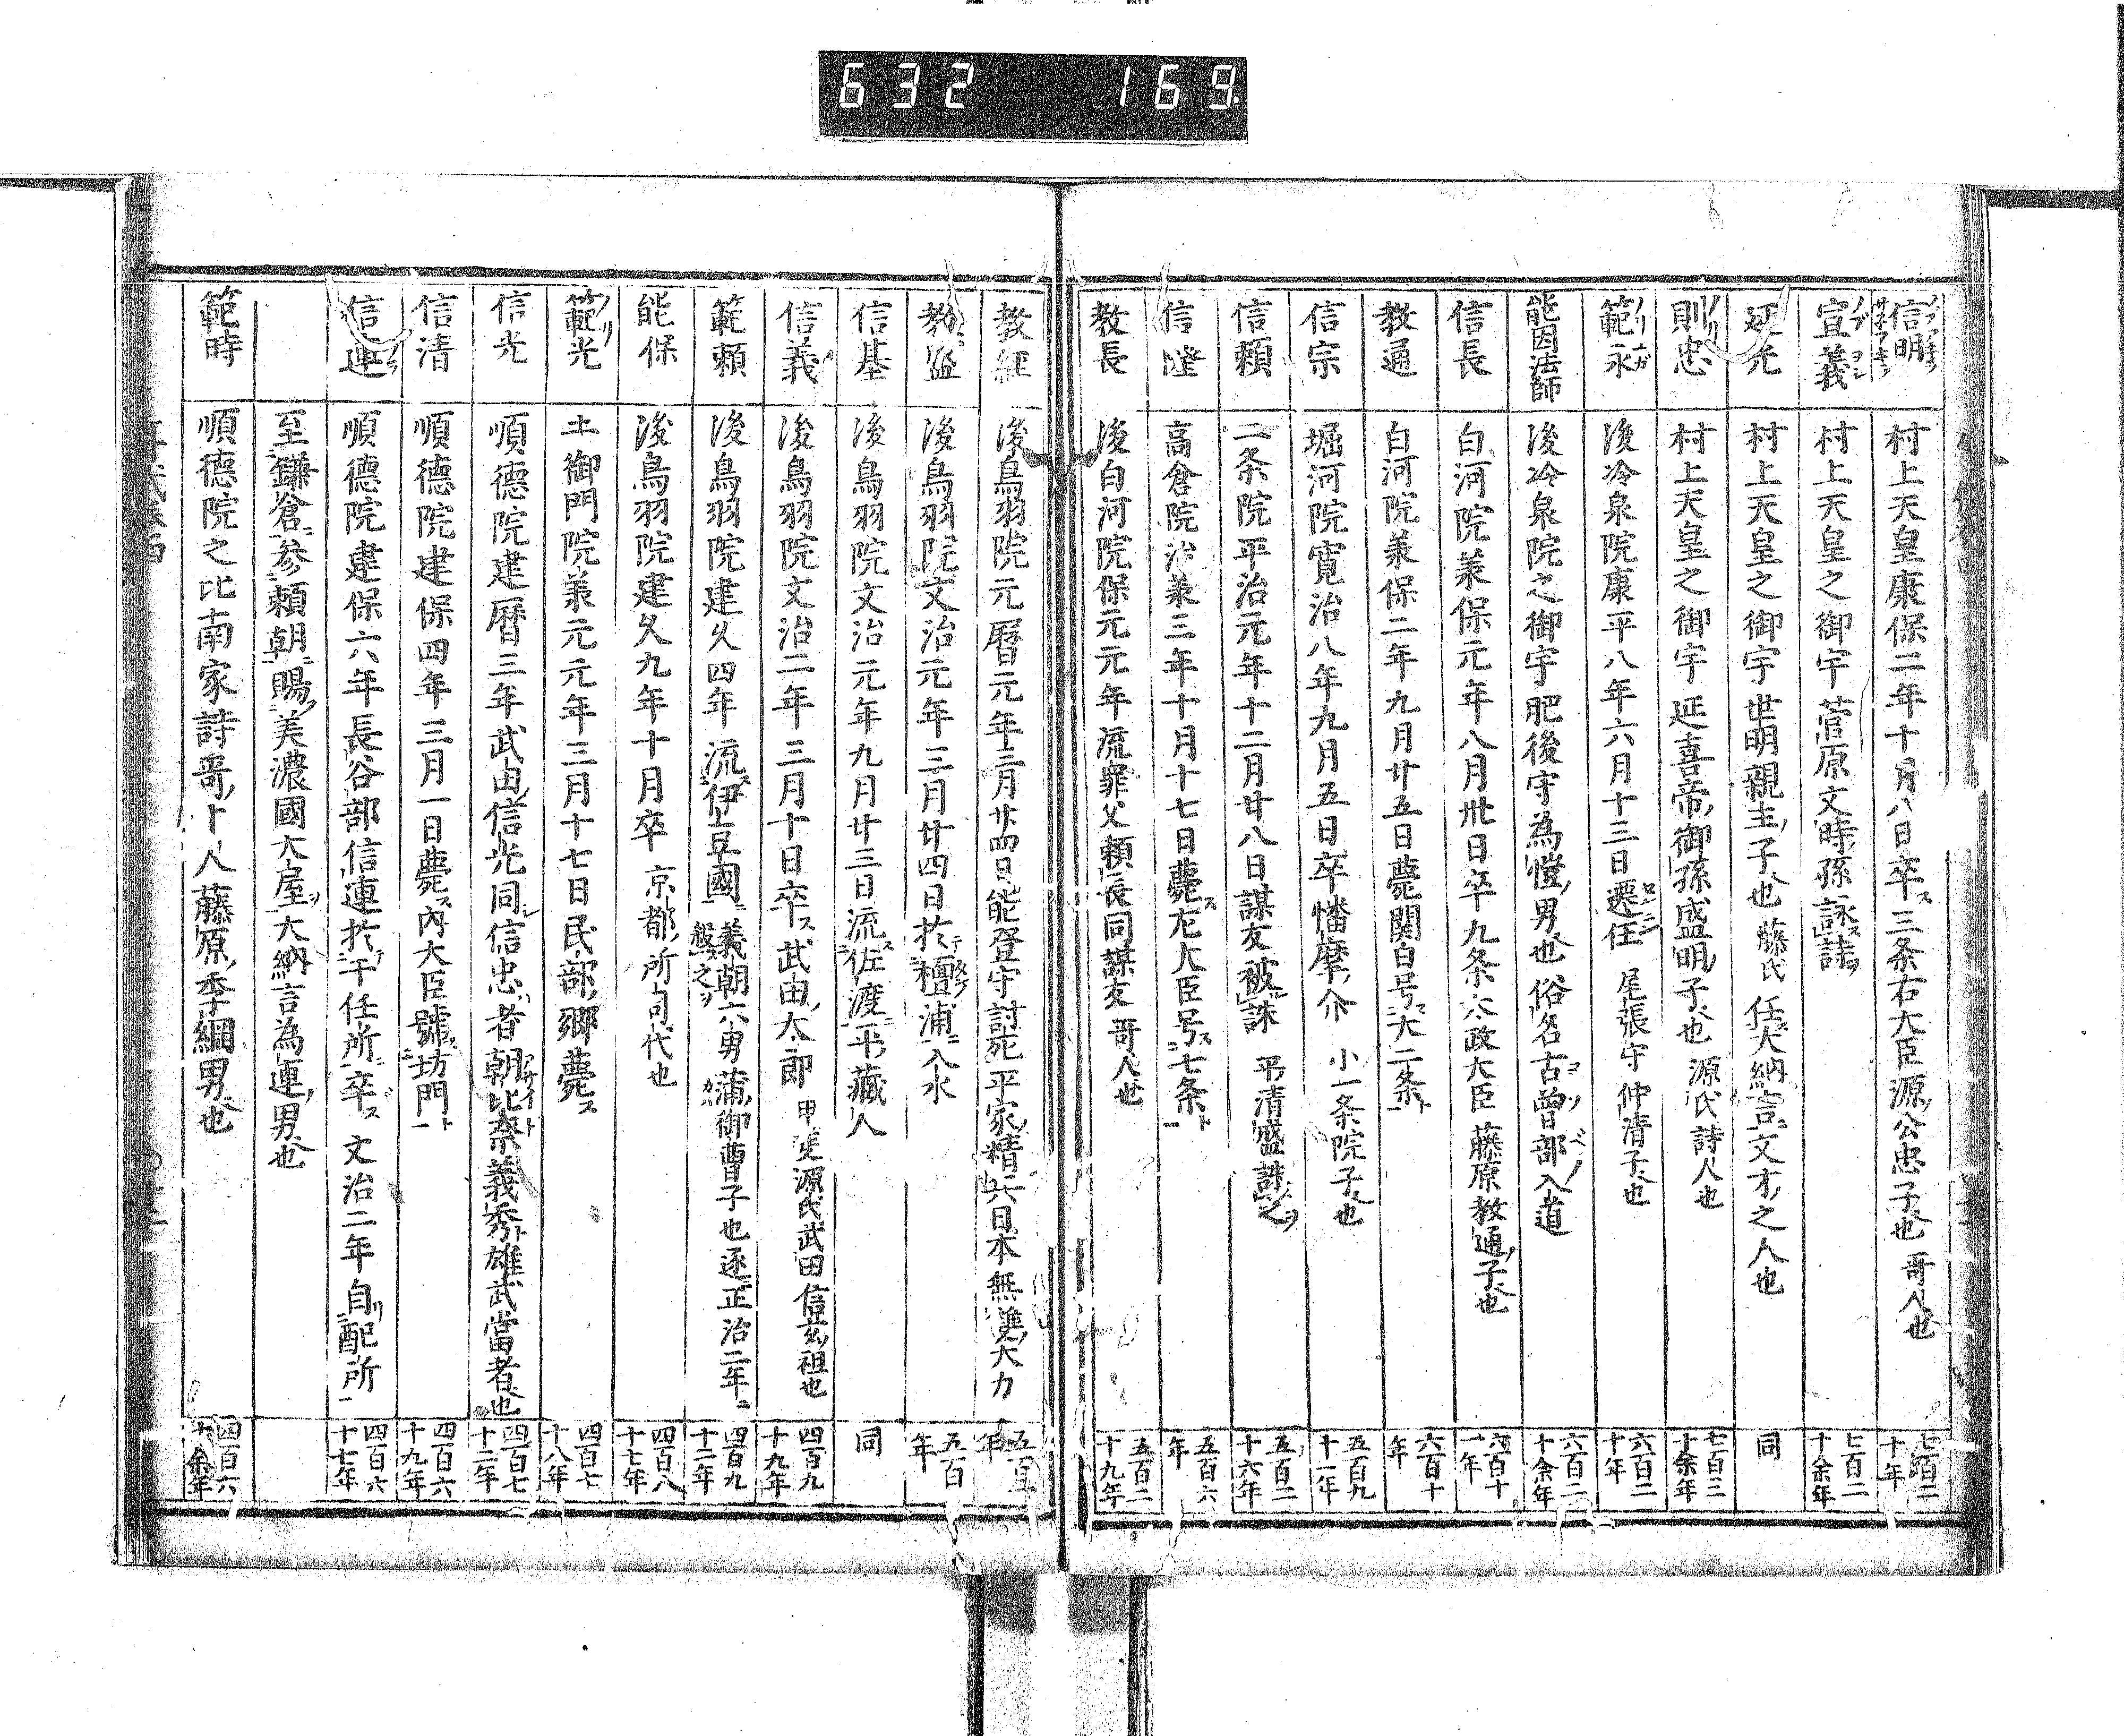 632 169
信明 村上天皇康保二年十月八日卒ス三条右大臣源公忠子也 哥人也 七百二十年
宣義 村上天皇之御宇 菅原文時孫詠詩 七百二十余年
延光 村上天皇之御宇 世明親王子也 藤氏 任大納言文才之人也 同
則忠 村上天皇之御宇 延喜帝御孫盛明子也 源氏詩人也 七百二十余年
範永 後冷泉院康平八年六月十三日遷任 尾張守 仲清子也 六百二十年
能因法師 後冷泉院之御宇 肥後守為愷男也 俗名古曽部入道 六百二十余年
信長 白河院兼保元年八月卅日卒 九条太政大臣 藤原教通子也 六百十一年
教通 白河院兼保二年九月廿五日薨関白号大二条ト 六百十年
信宗 堀河院寛治八年九月五日卒 幡摩介 小一条院子也 五百九十一年
信頼 二条院平治元年十二月廿八日謀友被誅 平清盛誅之 五百二十六年
信隆 高倉院治兼三年十月十七日薨ス 左大臣号ス七条ト 五百六年
教長 後白河院保元元年流罪父頼長同謀友 哥人也 五百二十九年
教経 後鳥羽院元暦元年二月廿四日能登守討死 平家精兵日本無雙大力 五百年
教盛 後鳥羽院文治元年三月廿四日於檀浦入水 五百年
信基 後鳥羽院文治元年九月廿三日流佐渡 平藏人 同
信義 後鳥羽院文治二年三月十日卒ス武田太郎 甲斐源氏武田信玄祖也 四百九十九年
範頼 後鳥羽院建久四年 流伊豆國 義朝六男 蒲御曹子也 逐正治二年 殺之 四百九十二年
能保 後鳥羽院建久九年十月卒 京都所司代也 四百八十七年
範光 土御門院兼元元年三月十七日民部卿薨ス 四百七十八年
信光 順德院建暦三年武田信光同信忠者朝比奈義秀ト雄武當者也 四百七十二年
信清 順德院建保四年三月一日薨ス内大臣號坊門ト 四百六十九年
信連 順德院建保六年長谷部信連於干任所卒ス 文治二年自配所 四百六十七年
至鎌倉参頼朝賜美濃國大屋大納言為連男也
範時 順德院之比南家詩哥ノ人藤原季綱男也 四百六十余年